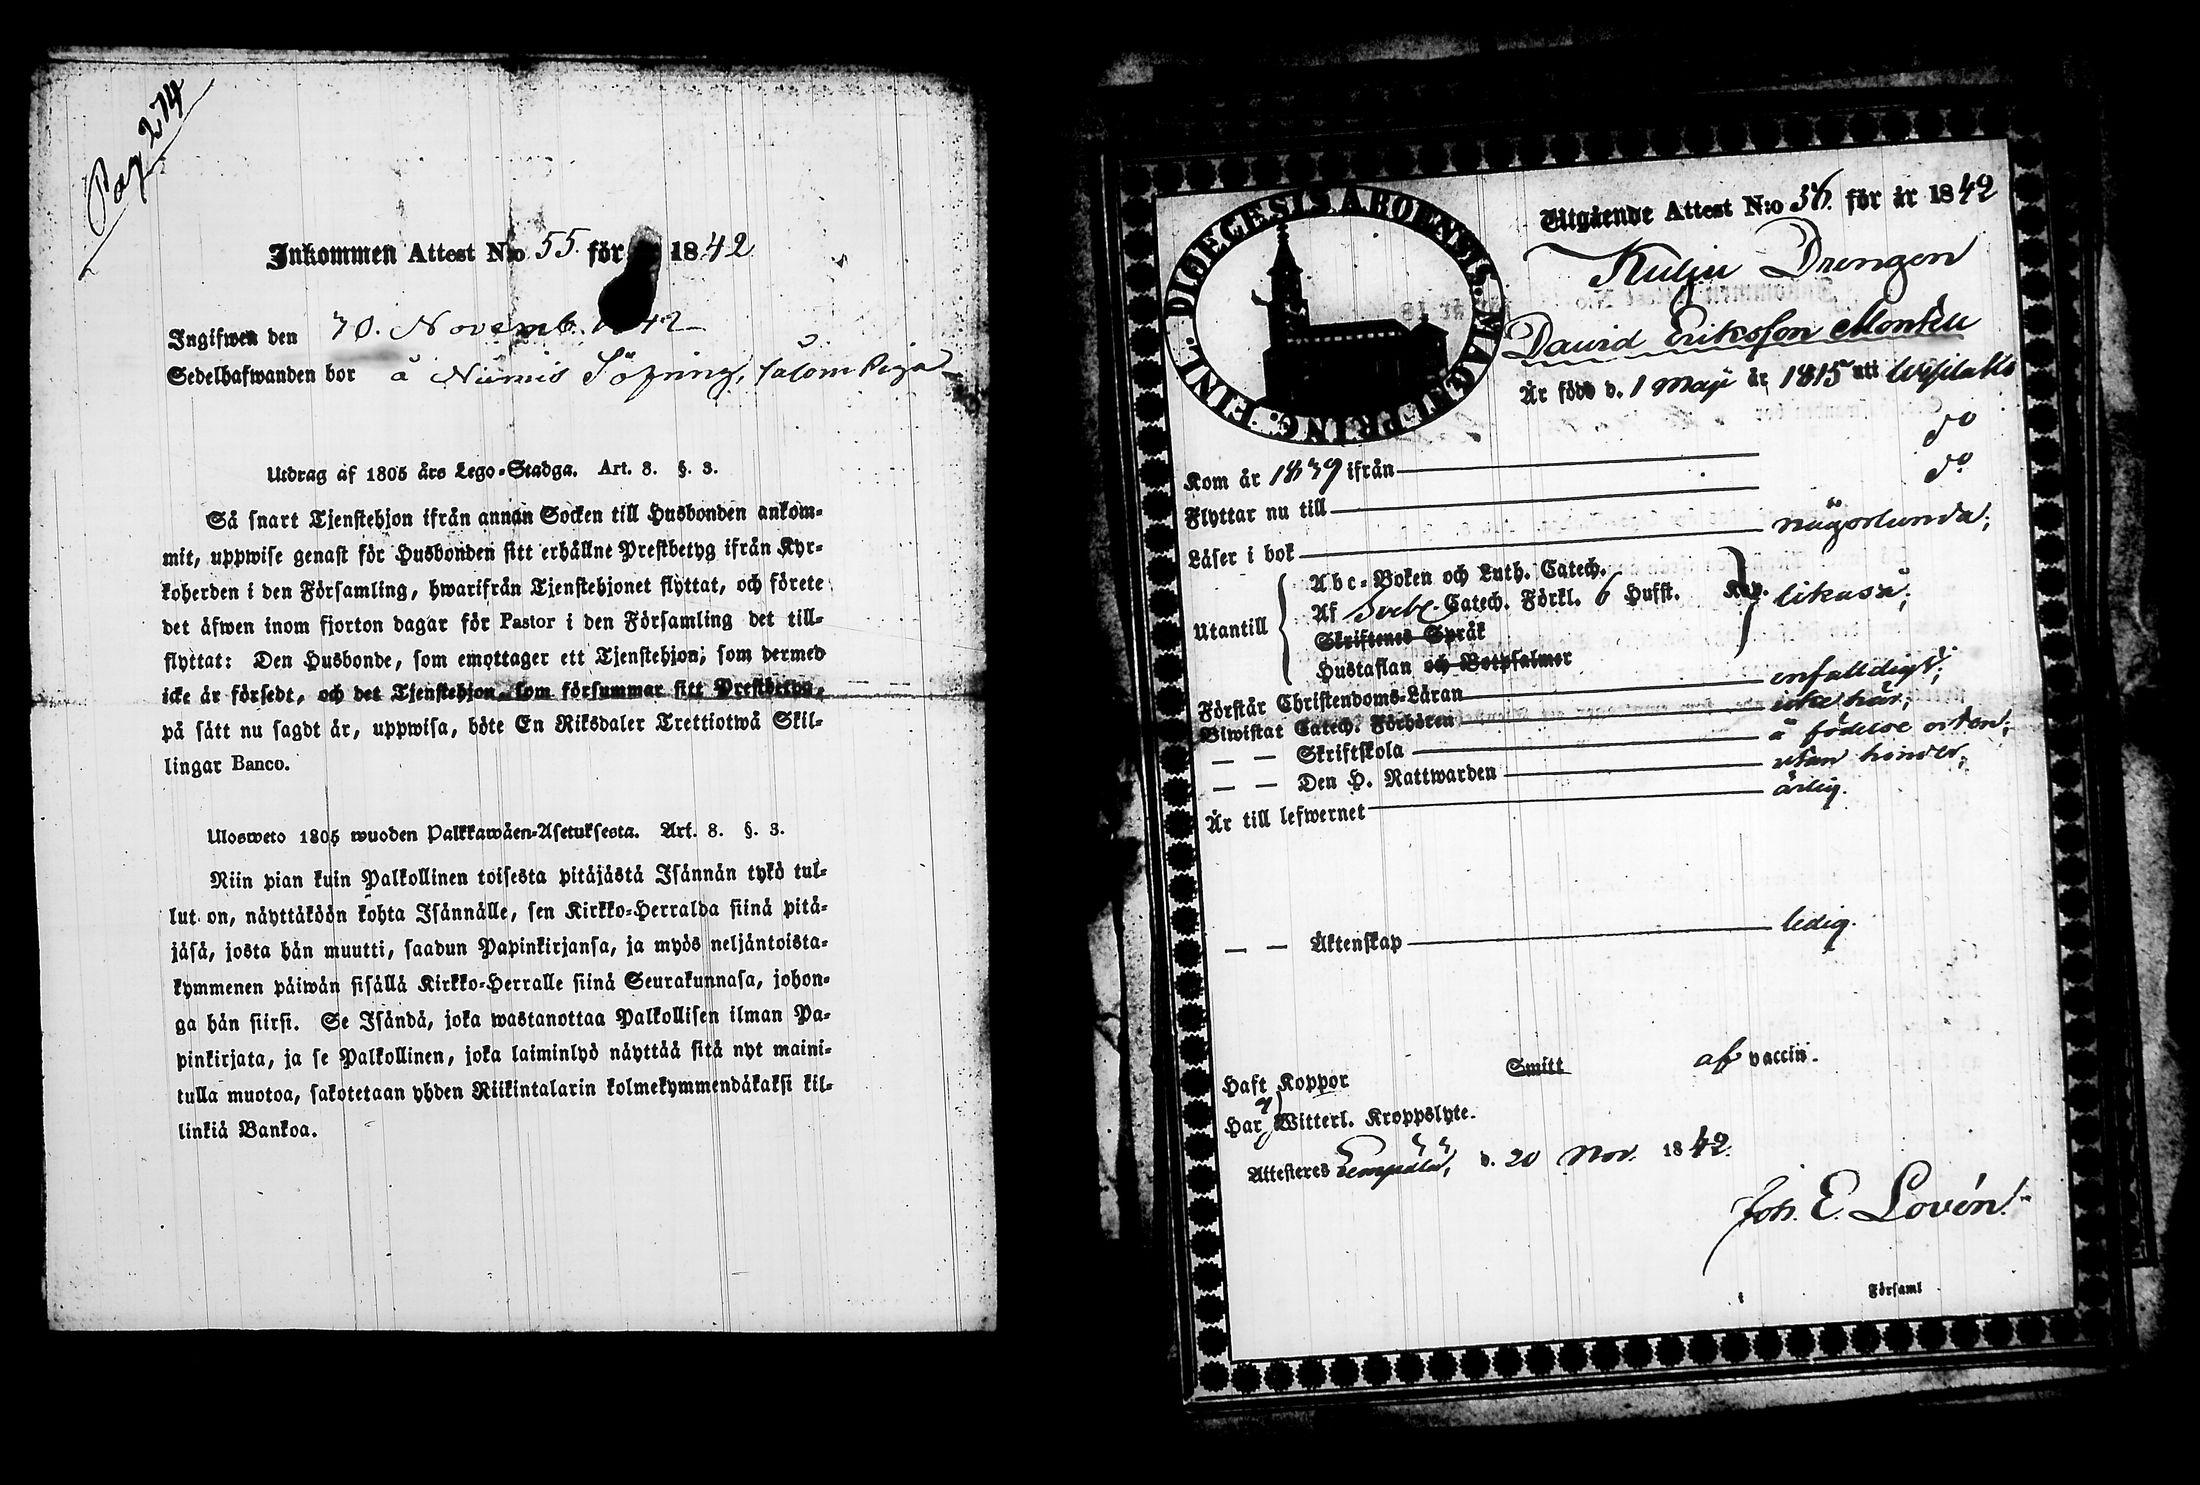 Pag 274
Inkommen Attest N:o 55. för 1842
Ingifwen den 30. Novemb. 1842
Sedelhafwanden bor å Niemis Söfring, såsom Piga
Utdrag af 1805 års Lego-Stadga. Art. 8. §. 3.
Så snart Tjenstehjon ifrån annan Socken till Husbonden ankom-
mit, uppwise genast för Husbonden sitt erhållne Prestbetyg ifrån Kyr-
koherden i den Församling, hwarifrån Tjenstehjonet flyttat, och förete
det äfwen inom fjorton dagar för Pastor i den Församling det till-
flyttat: Den Husbonde, som emottager ett Tjenstehjon, som dermed
icke är försedt, och det Tjenstehjon, som försummar sitt Prestbetyg,
på sätt nu sagdt är, uppwisa, böte En Riksdaler Trettiotwå Skil-
lingar Banco.
Ulosweto 1805 wuoden Palkkawäen-Asetuksesta. Art. 8. §. 3.
Niin pian kuin Palkollinen toisesta pitäjästä Isännän tykö tul-
lut on, näyttäköön kohta Isännälle, sen Kirkko-Herralda siinä pitä-
jäsä, josta hän muutti, saadun Papinkirjansa, ja myös neljäntoista-
kymmenen päiwän sisällä Kirkko-Herralle siinä Seurakunnasa, johon-
ga hän siirsi. Se Isändä, joka wastanottaa Palkollisen ilman Pa-
pinkirjata, ja se Palkollinen, joka laiminlyö näyttää sitä nyt maini-
tulla muotoa, sakotetaan yhden Riikintalarin kolmekymmendäkaksi kil-
linkiä Bankoa.
DIOECESIS ABOENSIS. MAG. PRING. FINL.
Utgående Attest N:o 36. för år 1842
Kulju Drengen
David Eriksson Monku
Är född d. 1 Maji år 1815 uti Wesilaks
Kom år 1839 ifrån do
Flyttar nu till do
Läser i bok någorlunda;
Utantill
Abc-Boken och Luth. Catech.
Af Sveb. Catech. Förkl. 6 Hufst. Kap. likaså;
Skriftenes Språk
Hustaflan och Botpsalmer
Förstår Christendoms-Läran enfaldigt;
Biwistat Catech. Förhören icke här;
— — Skriftskola å födelse orten;
— — Den H. Nattwarden utan hinder;
Är till lefwernet ärlig.
— — Äktenskap ledig.
Haft Koppor Smitt af vaccin.
Har Witterl. Kroppslyte.
Attesteras Lempälä, d. 20 Nov. 1842.
Joh. E. Lovén.
Församl